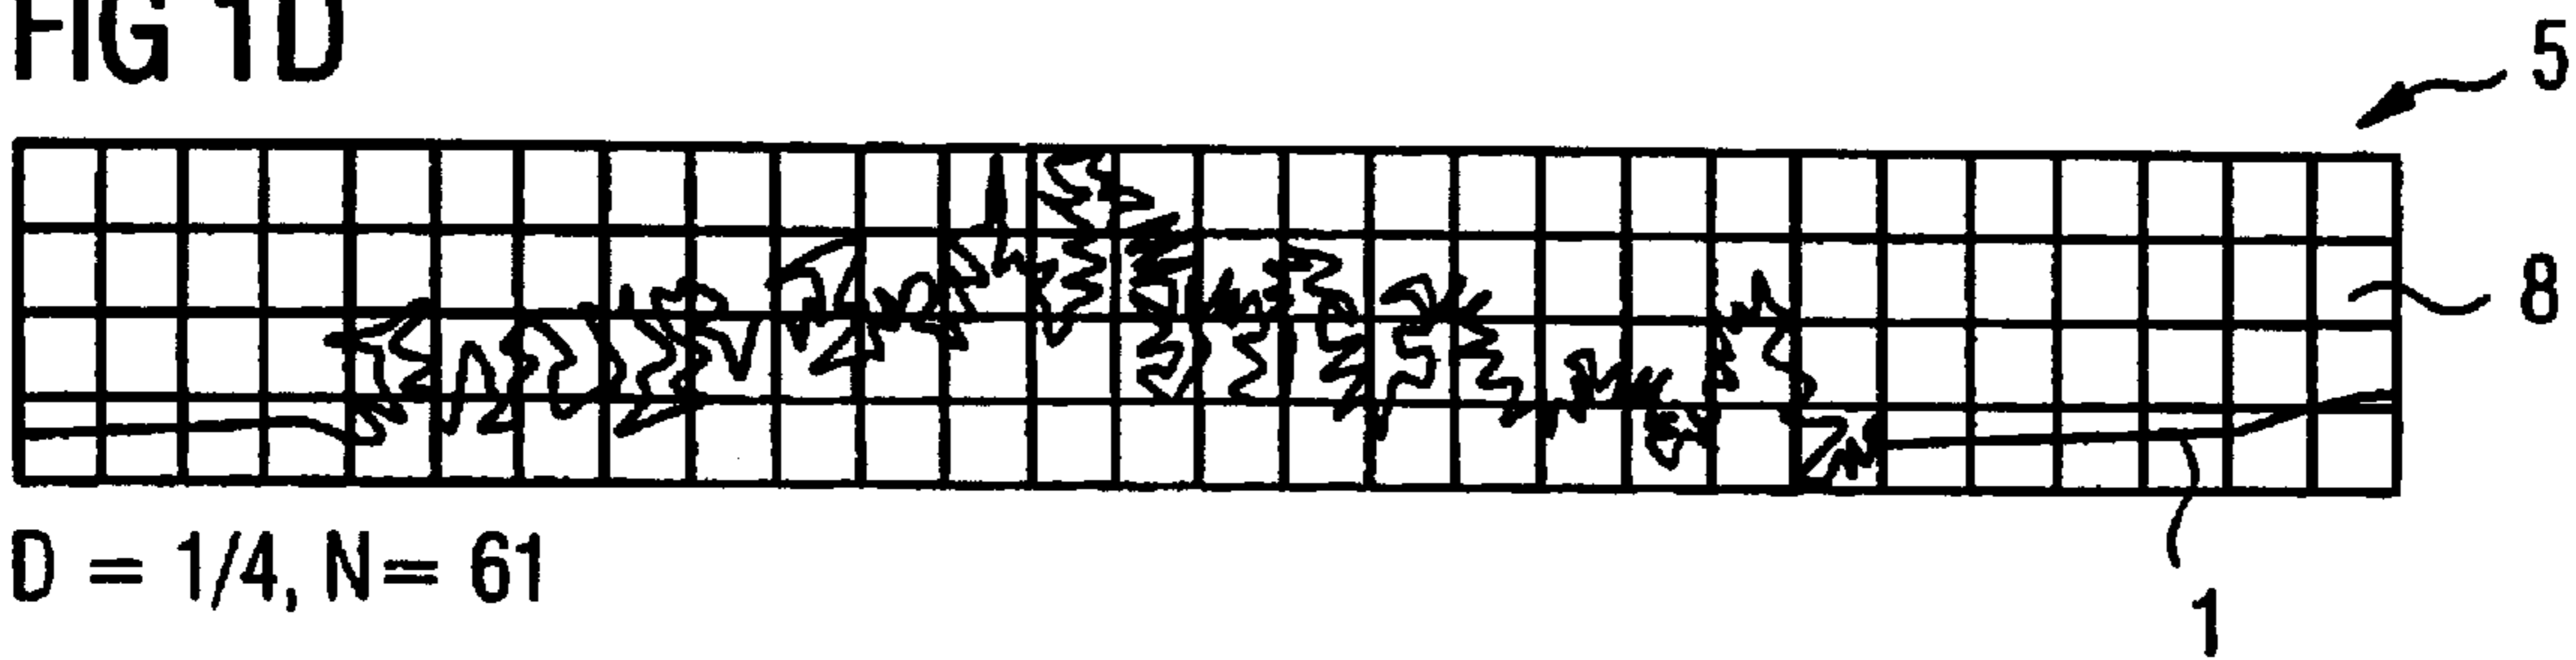 FIG 1D
5
8
D = 1/4, N= 61
1